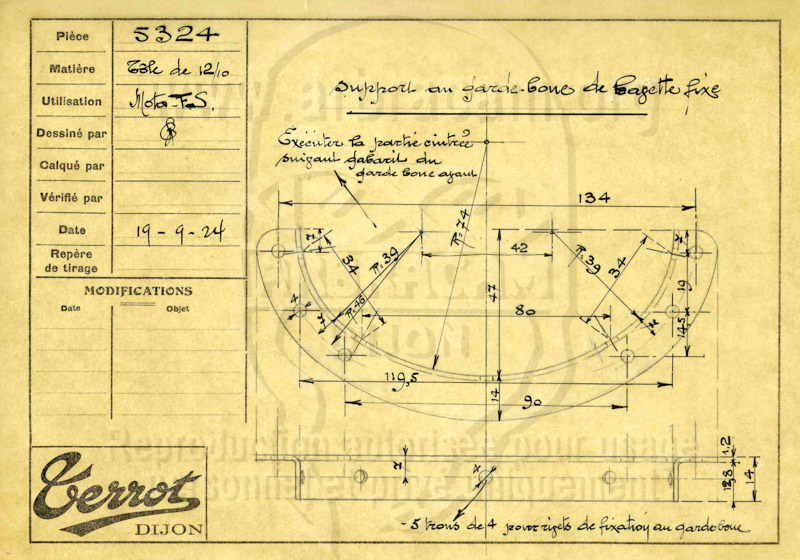 Pièce 5324
Matière Tôle de 12/10
Utilisation Moto F.S.
Dessiné par
Calqué par
Vérifié par
Date 19-9-24
Repère
de tirage
MODIFICATIONS
Date Objet
Terrot
DIJON
Support au garde-boue de bagette fixe
Exécuter la partie cintrée
suivant gabarit du
garde boue avant
134
R=74
7
34
R=39
42
R=39
34
7
47
19
R=46
4
7
80
7
14,5
119,5
14
90
7
4
1,2
12,8
14
- 5 trous de 4 pour rivets de fixation au garde boue
Reproduction autorisée pour usage